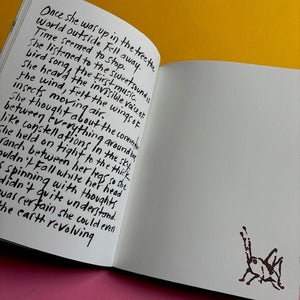 Once she was up in the tree the
world outside fell away.
Time seemed to stop.
She listened to the sweet sounds
bird song, the first music
she heard the invisible voice of
the wind, felt the wings of
insects moving air.
She thought about the connection
between everything around her
like constellations in the sky
she held on tight to the thick
ranch between her legs so she
ouldn't fall while her head
s spinning with thoughts
didn't quite understand.
was certain she could even
the earth revolving